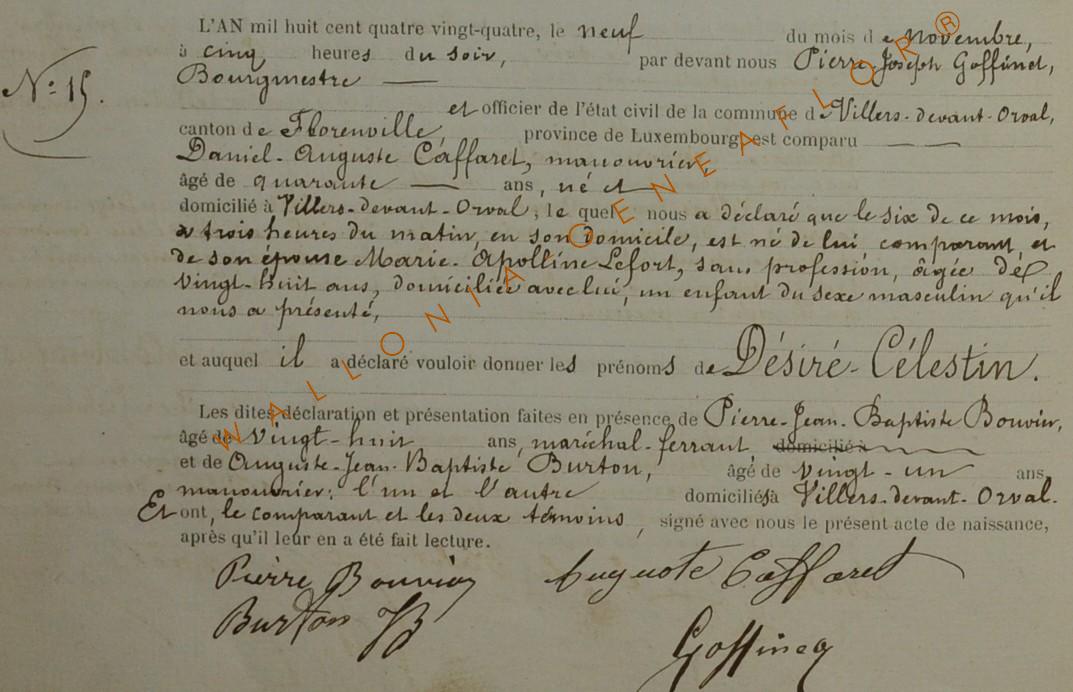 L'AN mil huit cent quatre vingt-quatre, le neuf du mois de Novembre,
à cinq heures du soir, par devant nous Pierre-Joseph Goffinet,
Bourgmestre
N° 15.
et officier de l'état civil de la commune de Villers-devant-Orval,
canton de Florenville, province de Luxembourg est comparu
Daniel-Auguste Caffaret, manouvrier
âgé de quarante ans, né et
domicilié à Villers-devant-Orval, lequel nous a déclaré que le six de ce mois,
à trois heures du matin, en son domicile, est né de lui comparant, et
de son épouse Marie-Apolline Lefort, sans profession, âgée de
vingt-huit ans, domiciliée avec lui, un enfant du sexe masculin qu'il
nous a présenté,
et auquel il a déclaré vouloir donner les prénoms de Désiré-Célestin.
Les dites déclaration et présentation faites en présence de Pierre-Jean-Baptiste Bouvier,
âgé de vingt-huit ans, maréchal-ferrant, domicilié à
et de Auguste-Jean-Baptiste Burton, âgé de vingt-un ans,
manouvrier; l'un et l'autre domiciliés à Villers-devant-Orval.
Et ont, le comparant et les deux témoins, signé avec nous le présent acte de naissance,
après qu'il leur en a été fait lecture.
Pierre Bouvier Auguste Caffaret
Burton JB
Goffinet
WALLONIA GENEAFLOR ®